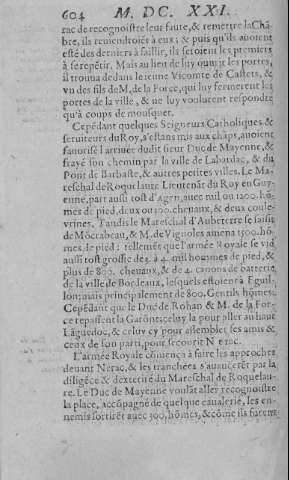 604 M. DC. XXI.
rac de recognoistre leur faute, & remettre la Chã-
bre, ils reuiendroiẽt à eux; & puis qu'ils auoient
esté des derniers à faillir, ils seroient les premiers
à se repẽtir. Mais au lieu de luy ouurir les portes,
il trouua dedans le ieune Vicomte de Castets, &
vn des fils de M. de la Force, qui luy fermerent les
portes de la ville, & ne luy voulurent respondre
qu'à coups de mousquet.
Cepẽdant quelques Seigneurs Catholiques &
seruiteurs du Roy, s'estans mis aux chãps, auoient
fauorisé l'arriuée dudit sieur Duc de Mayenne, &
frayé son chemin par la ville de Labardac, & du
Pont de Barbaste, & autres petites villes. Le Ma-
reschal de Roquelaure Lieutenãt du Roy en Guy-
enne, part aussi tost d'Agen, auec mil ou 1200. hõ-
mes de pied, deux ou 300. cheuaux, & deux coule-
vrines. Tandis le Mareschal d'Aubeterre se saisit
de Mõcrabeau, & M. de Vignoles amena 1500. hõ-
mes, le pied: tellemẽt que l'armée Royale se vid
aussi tost grosse de 3. à 4. mil hommes de pied, &
plus de 800. cheuaux, & de 4. canons de batterie
de la ville de Bordeaux, lesquels estoient à Eguil-
lon; mais principalement de 800. Gentils hõmes.
Cepẽdant que le Duc de Rohan & M. de la For-
ce repassent la Garõne; celuy la pour aller au haut
Lãguedoc, & celuy cy pour assembler ses amis &
ceux de son parti, pour secourir Nerac.
L'armée Royale cõmença à faire les approches
deuant Nerac, & les tranchées s'auancerẽt par la
diligẽce & dexterité du Mareschal de Roquelau-
re. Le Duc de Mayenne voulãt aller recognoistre
la place, accõpagné de quelque caualerie, les en-
nemis sortirẽt auec 300. hõmes, & cõme ils furent